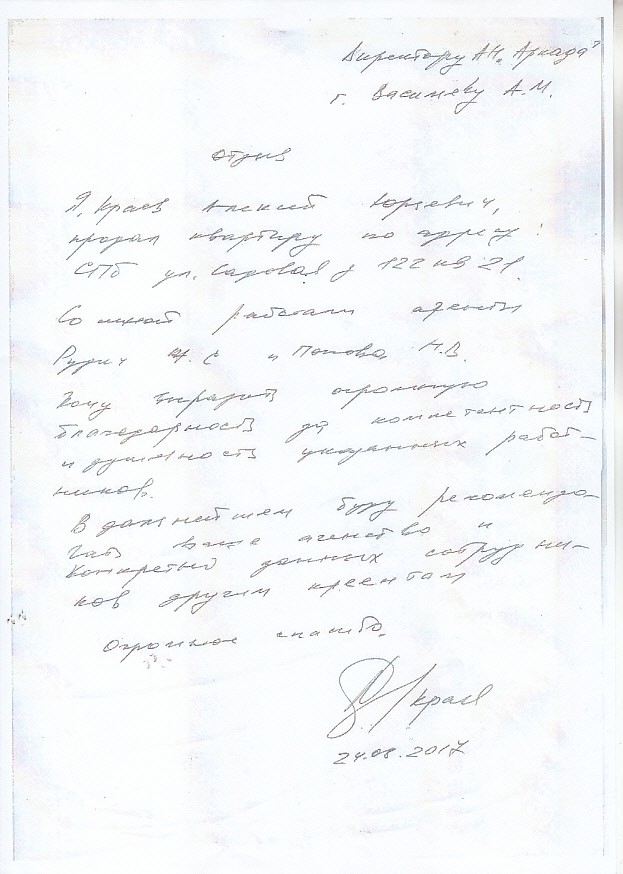 Директору АН „Аркада"
г. Васильеву А.М.
Отзыв
Я, Краев Алексей Юрьевич,
продал квартиру по адресу:
СПб ул. Садовая д 122 кв 21.
Со мной работали агенты
Рурич И. С и Попова Н.В.
Хочу выразить огромную
благодарность за компетентность
и душевность указанных работ-
ников.
В дальнейшем буду рекомендо-
вать ваше агенство и
конкретно данных сотрудни-
ков другим клиентам
Огромное спасибо.
Краев
24.08.2017